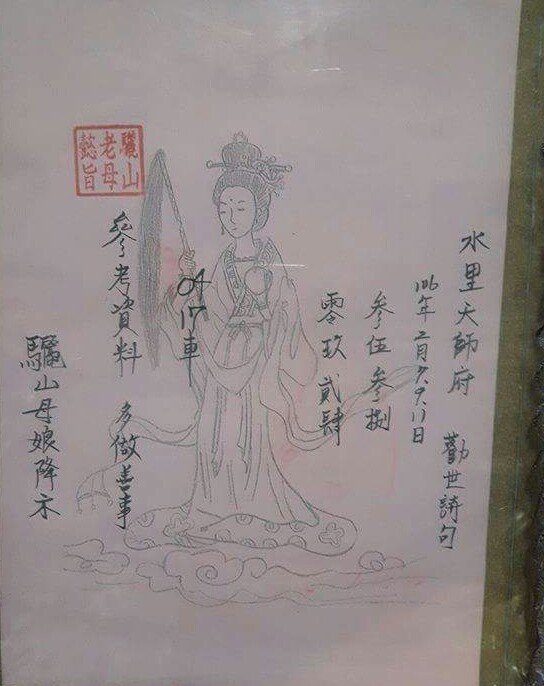 水里天師府 勸世詩句
106年二月7.9.11日
參伍參捌
零玖 貳肆
04
17車
參考資料 多做善事
驪山母娘降示
驪山老母懿旨